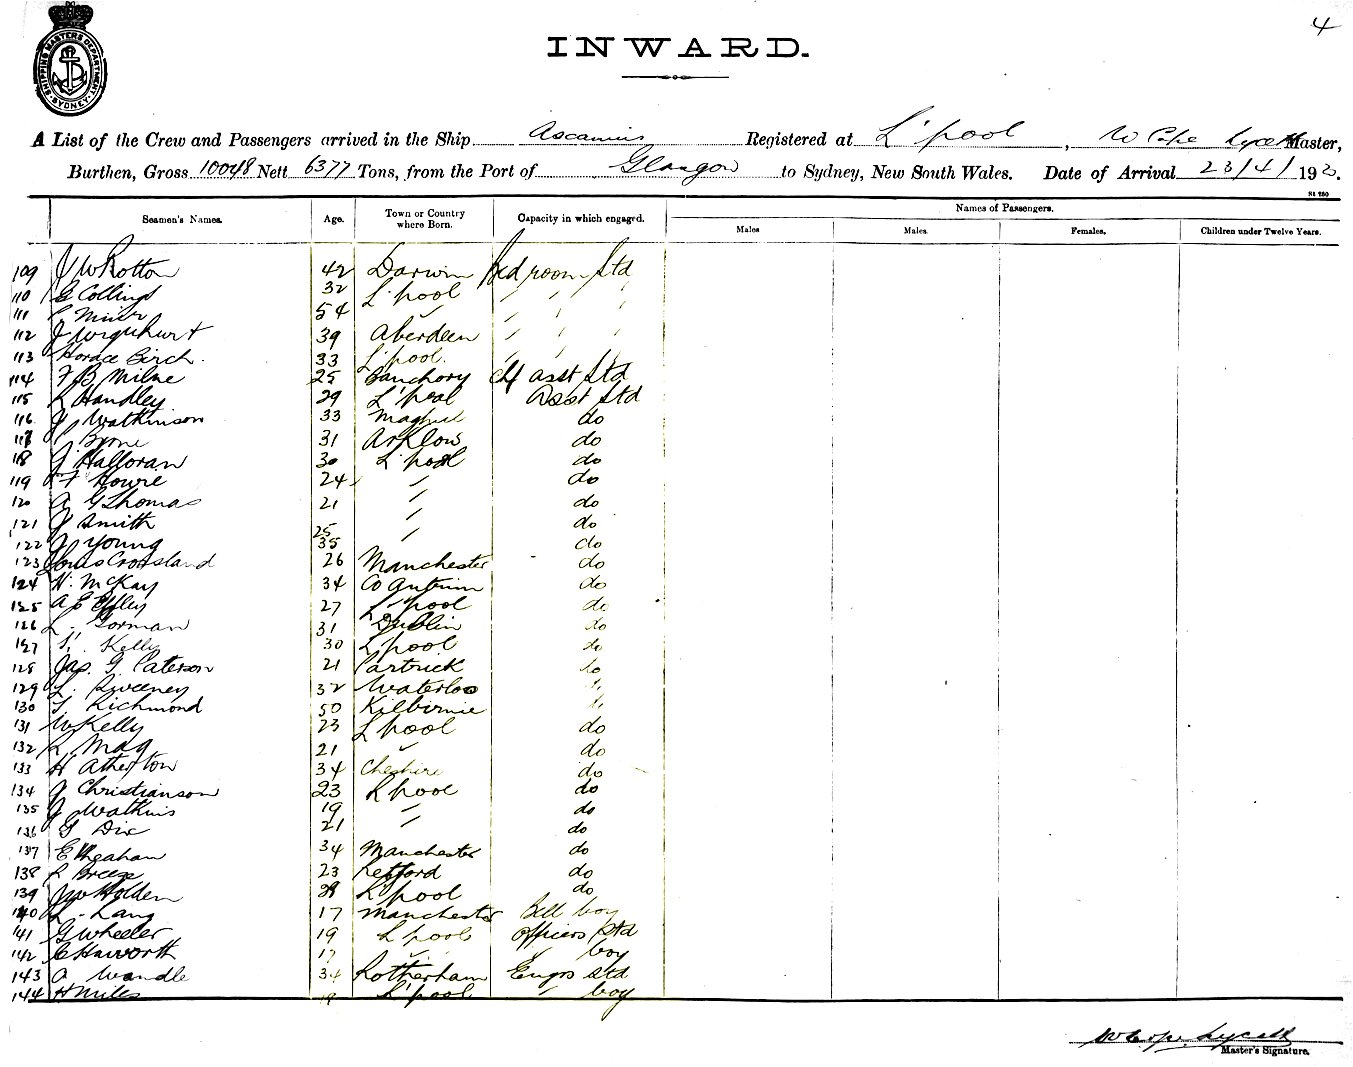 4
SHIPPING MASTERS DEPARTMENT SYDNEY
INWARD.
A List of the Crew and Passengers arrived in the Ship Ascanius Registered at L'pool, W Cope Lycett Master,
Burthen, Gross 10048 Nett 6377 Tons, from the Port of Glasgow to Sydney, New South Wales. Date of Arrival 23/4/192
St 750
Seamen's Names. Age. Town or Country where Born. Capacity in which engaged. Names of Passengers.
Males Males. Females. Children under Twelve Years.
109 J W Rotton 42 Darwin Bed room Std
110 G Collings 32 L'pool " " "
111 Muir 54 " " " "
112 J Urquhart 39 Aberdeen " " "
113 Horace Birch. 33 L'pool. " " "
114 F B Milne 25 Banchory Ch asst Std
115 L Handley 29 L'pool Asst Std
116 J Watkinson 33 Maghull do
117 Byrne 31 Arklow do
118 J Halloran 30 L'pool do
119 F Howie 24 " do
120 A G Thomas 21 " do
121 J Smith 25 " do
122 A Young 35 " do
123 Louis Crossland 26 Manchester do
124 H. McKay 34 Co Antrim do
125 A E Effley 27 L'pool do
126 L. Gorman 31 Dublin do
127 T. Kelly 30 L'pool do
128 Jas. G Paterson 21 Partrick do
129 L. Sweeney 32 Waterloo "
130 T. Richmond 50 Kilbirnie "
131 W Kelly 23 L'pool do
132 R Mag 21 " do
133 H Atherton 34 Cheshire do
134 J Christianson 23 L'pool do
135 J Watkins 19 " do
136 G Dix 21 " do
137 E Heahan 34 Manchester do
138 L Breeze 23 Retford do
139 J W Holden 28 L'pool do
140 L. Lang 17 Manchester Bell boy
141 G Wheeler 19 L'pool Officers Std
142 E Haworth 17 " " boy
143 A Wandle 34 Rotherham Engrs Std
144 H Miles 18 L'pool " boy
W Cope Lycett
Master's Signature.